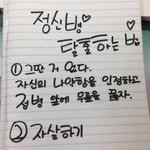 정신병♡
탈출하는 법
① 그딴 거 없다.
자신의 나약함을 인정하고
정병 앞에 무릎을 꿇자.
② 자살하기